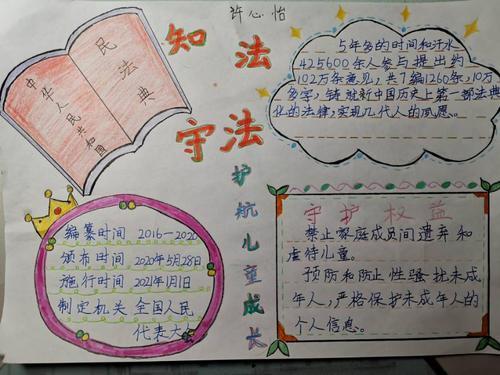 许心怡
知法
守法
护航儿童成长
中华人民共和国
民法典
5年多的时间和汗水
425600余人参与提出约
102万条意见，共7编1260条，10万
多字，铸就新中国历史上第一部法典
化的法律，实现几代人的夙愿。
编纂时间 2016—2020
颁布时间 2020年5月28日
施行时间 2021年1月1日
制定机关 全国人民
代表大会
守护权益
禁止家庭成员间遗弃和
虐待儿童。
预防和防止性骚扰未成
年人，严格保护未成年人的
个人信息。